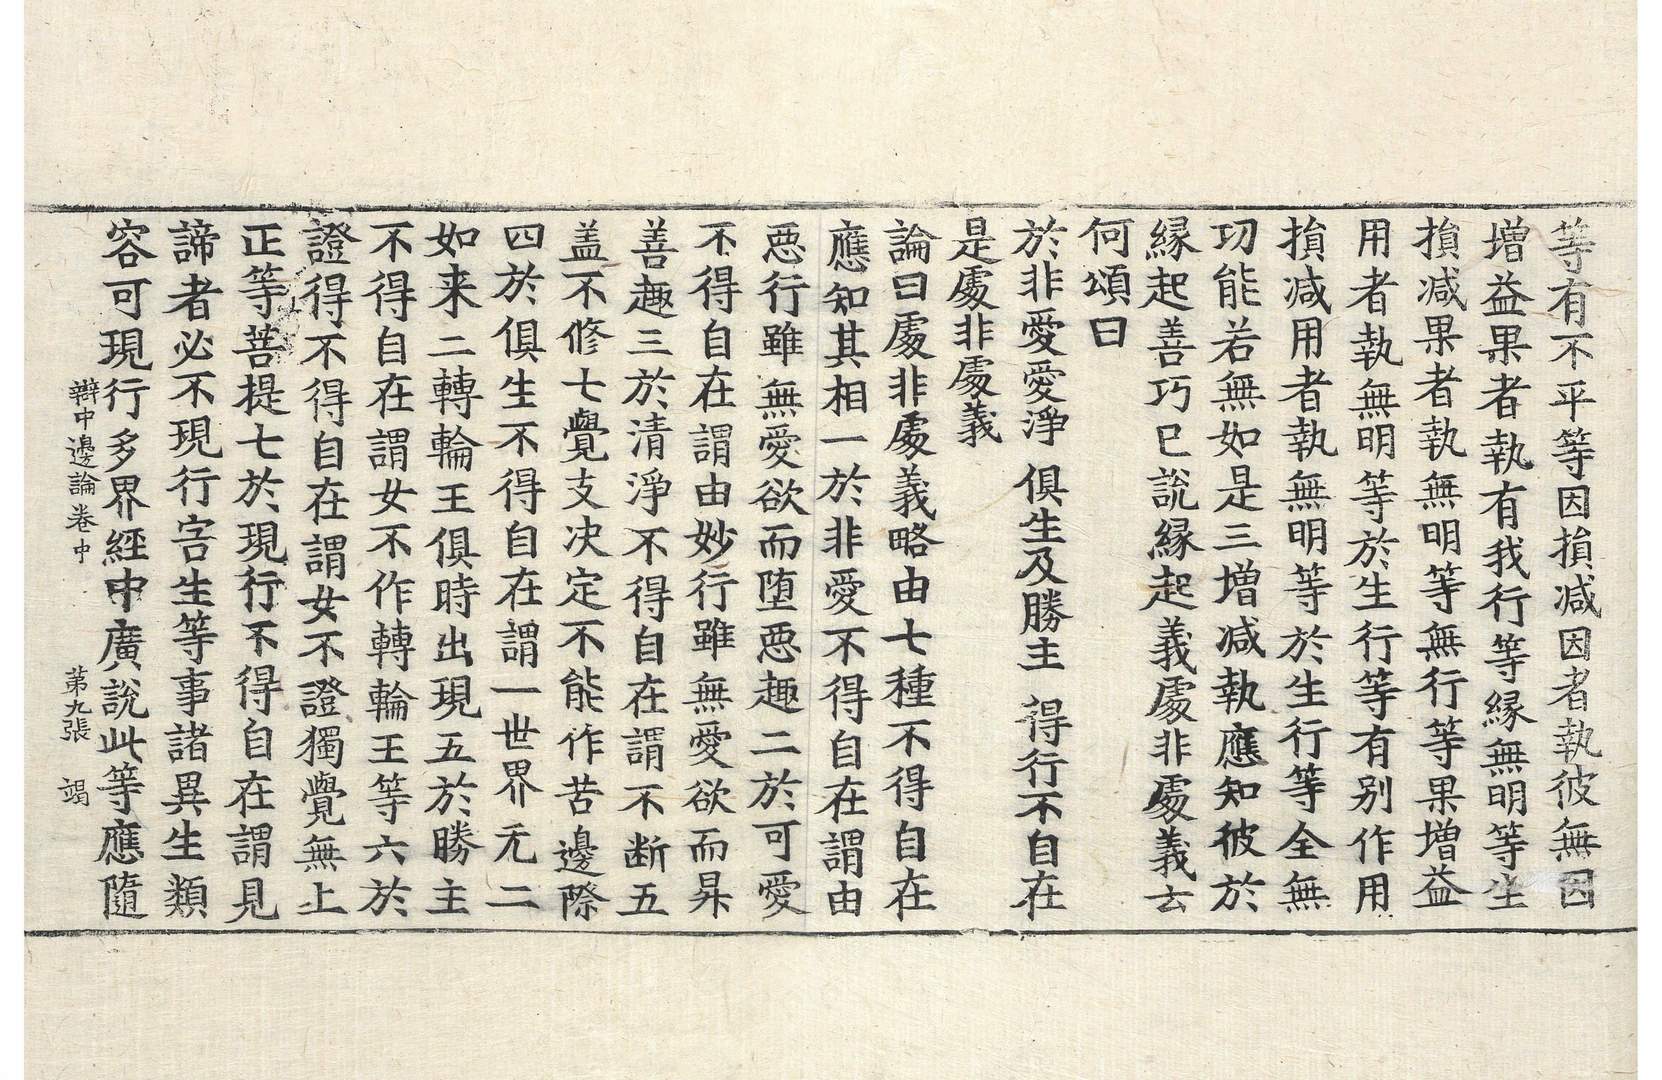 等有不平等因損减因者執彼無因
增益果者執有我行等縁無明等生
損减果者執無明等無行等果增益
用者執無明等於生行等有别作用
損减用者執無明等於生行等全無
功能若無如是三增减執應知彼於
縁起善巧已說縁起義處非處義云
何頌曰
於非愛愛淨 俱生及勝主 得行不自在
是處非處義
論曰處非處義略由七種不得自在
應知其相一於非愛不得自在謂由
惡行雖無愛欲而堕惡趣二於可愛
不得自在謂由妙行雖無愛欲而昇
善趣三於清淨不得自在謂不断五
盖不修七覺支决定不能作苦邊際
四於俱生不得自在謂一世界无二
如来二轉輪王俱時出現五於勝主
不得自在謂女不作轉輪王等六於
證得不得自在謂女不證獨覺無上
正等菩提七於現行不得自在謂見
諦者必不現行害生等事諸異生類
容可現行多界經中廣說此等應隨
辯中邊論卷中 第九張 竭